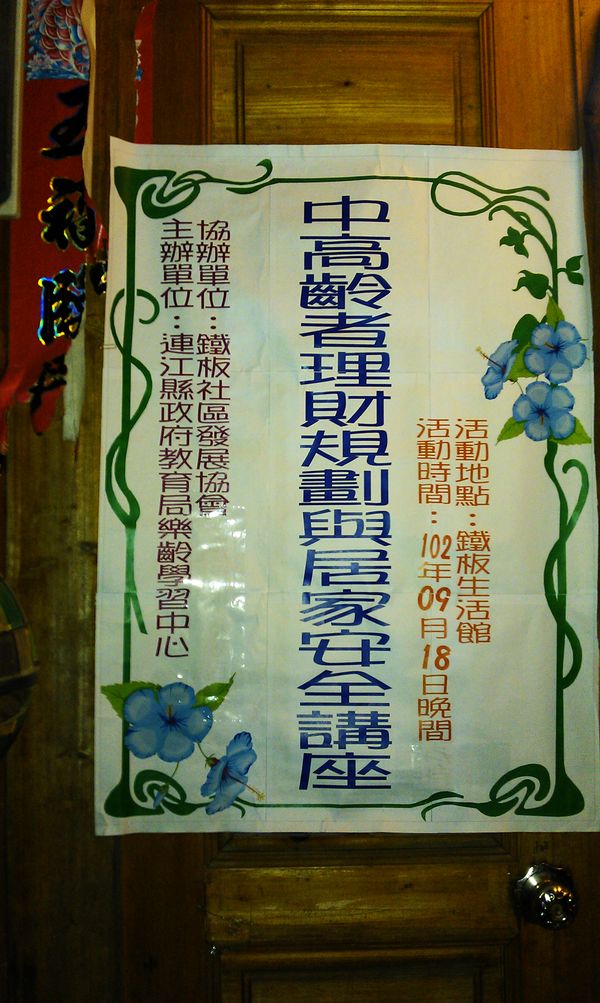 活動地點：鐵板生活館
活動時間：102年09月18日晚間
中高齡者理財規劃與居家安全講座
協辦單位：鐵板社區發展協會
主辦單位：連江縣政府教育局樂齡學習中心
五福